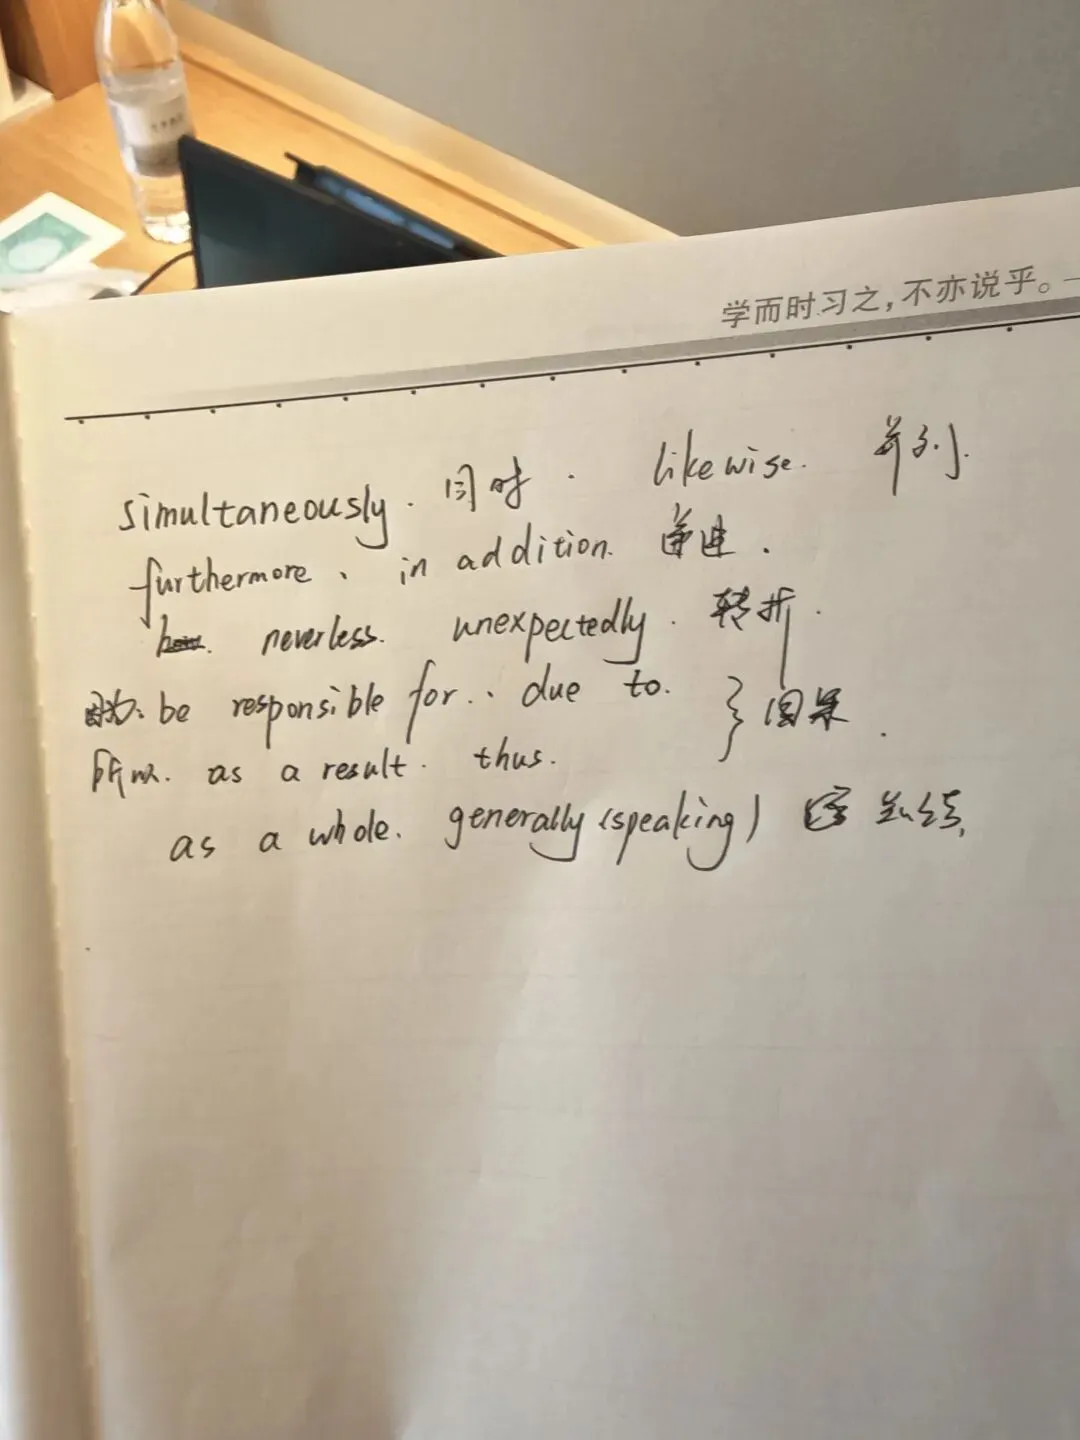 学而时习之,不亦说乎。
simultaneously. 同时. likewise. 并列.
furthermore、in addition. 递进.
neverless. unexpectedly. 转折.
因为: be responsible for.、due to. } 因果.
所以. as a result. thus.
as a whole. generally (speaking) 总结.